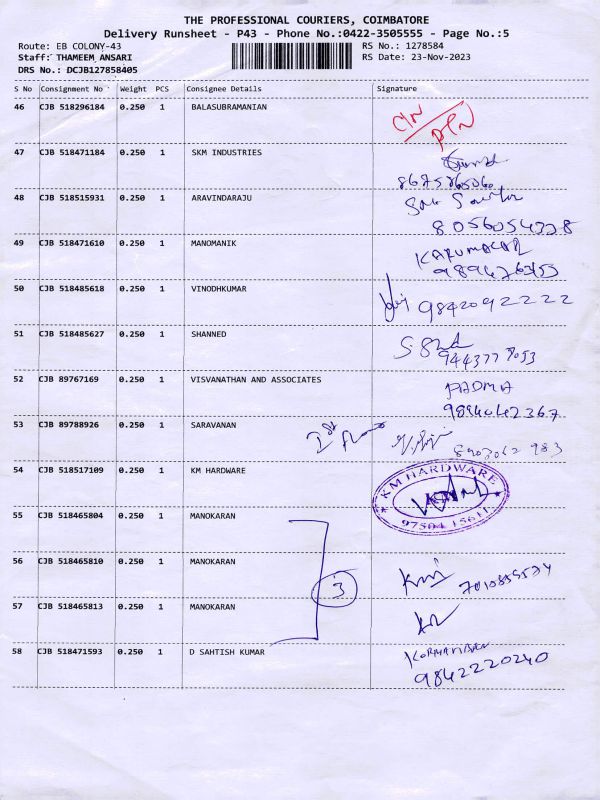 THE PROFESSIONAL COURIERS, COIMBATORE
Delivery Runsheet - P43 - Phone No.:0422-3505555 - Page No.:5
Route: EB COLONY-43
RS No.: 1278584
Staff: THAMEEM ANSARI
RS Date: 23-Nov-2023
DRS No.: DCJB127858405
S No Consignment No Weight PCS Consignee Details Signature
46 CJB 518296184 0.250 1 BALASUBRAMANIAN
47 CJB 518471184 0.250 1 SKM INDUSTRIES
48 CJB 518515931 0.250 1 ARAVINDARAJU
8056054328
49 CJB 518471610 0.250 1 MANOMANIK
50 CJB 518485618 0.250 1 VINODHKUMAR
9842092222
51 CJB 518485627 0.250 1 SHANNED
52 CJB 89767169 0.250 1 VISVANATHAN AND ASSOCIATES PADMA
9894042367
53 CJB 89788926 0.250 1 SARAVANAN
54 CJB 518517109 0.250 1 KM HARDWARE KM HARDWARE
97504 15611
55 CJB 518465804 0.250 1 MANOKARAN
56 CJB 518465810 0.250 1 MANOKARAN
3
57 CJB 518465813 0.250 1 MANOKARAN
58 CJB 518471593 0.250 1 D SAHTISH KUMAR
9842220240